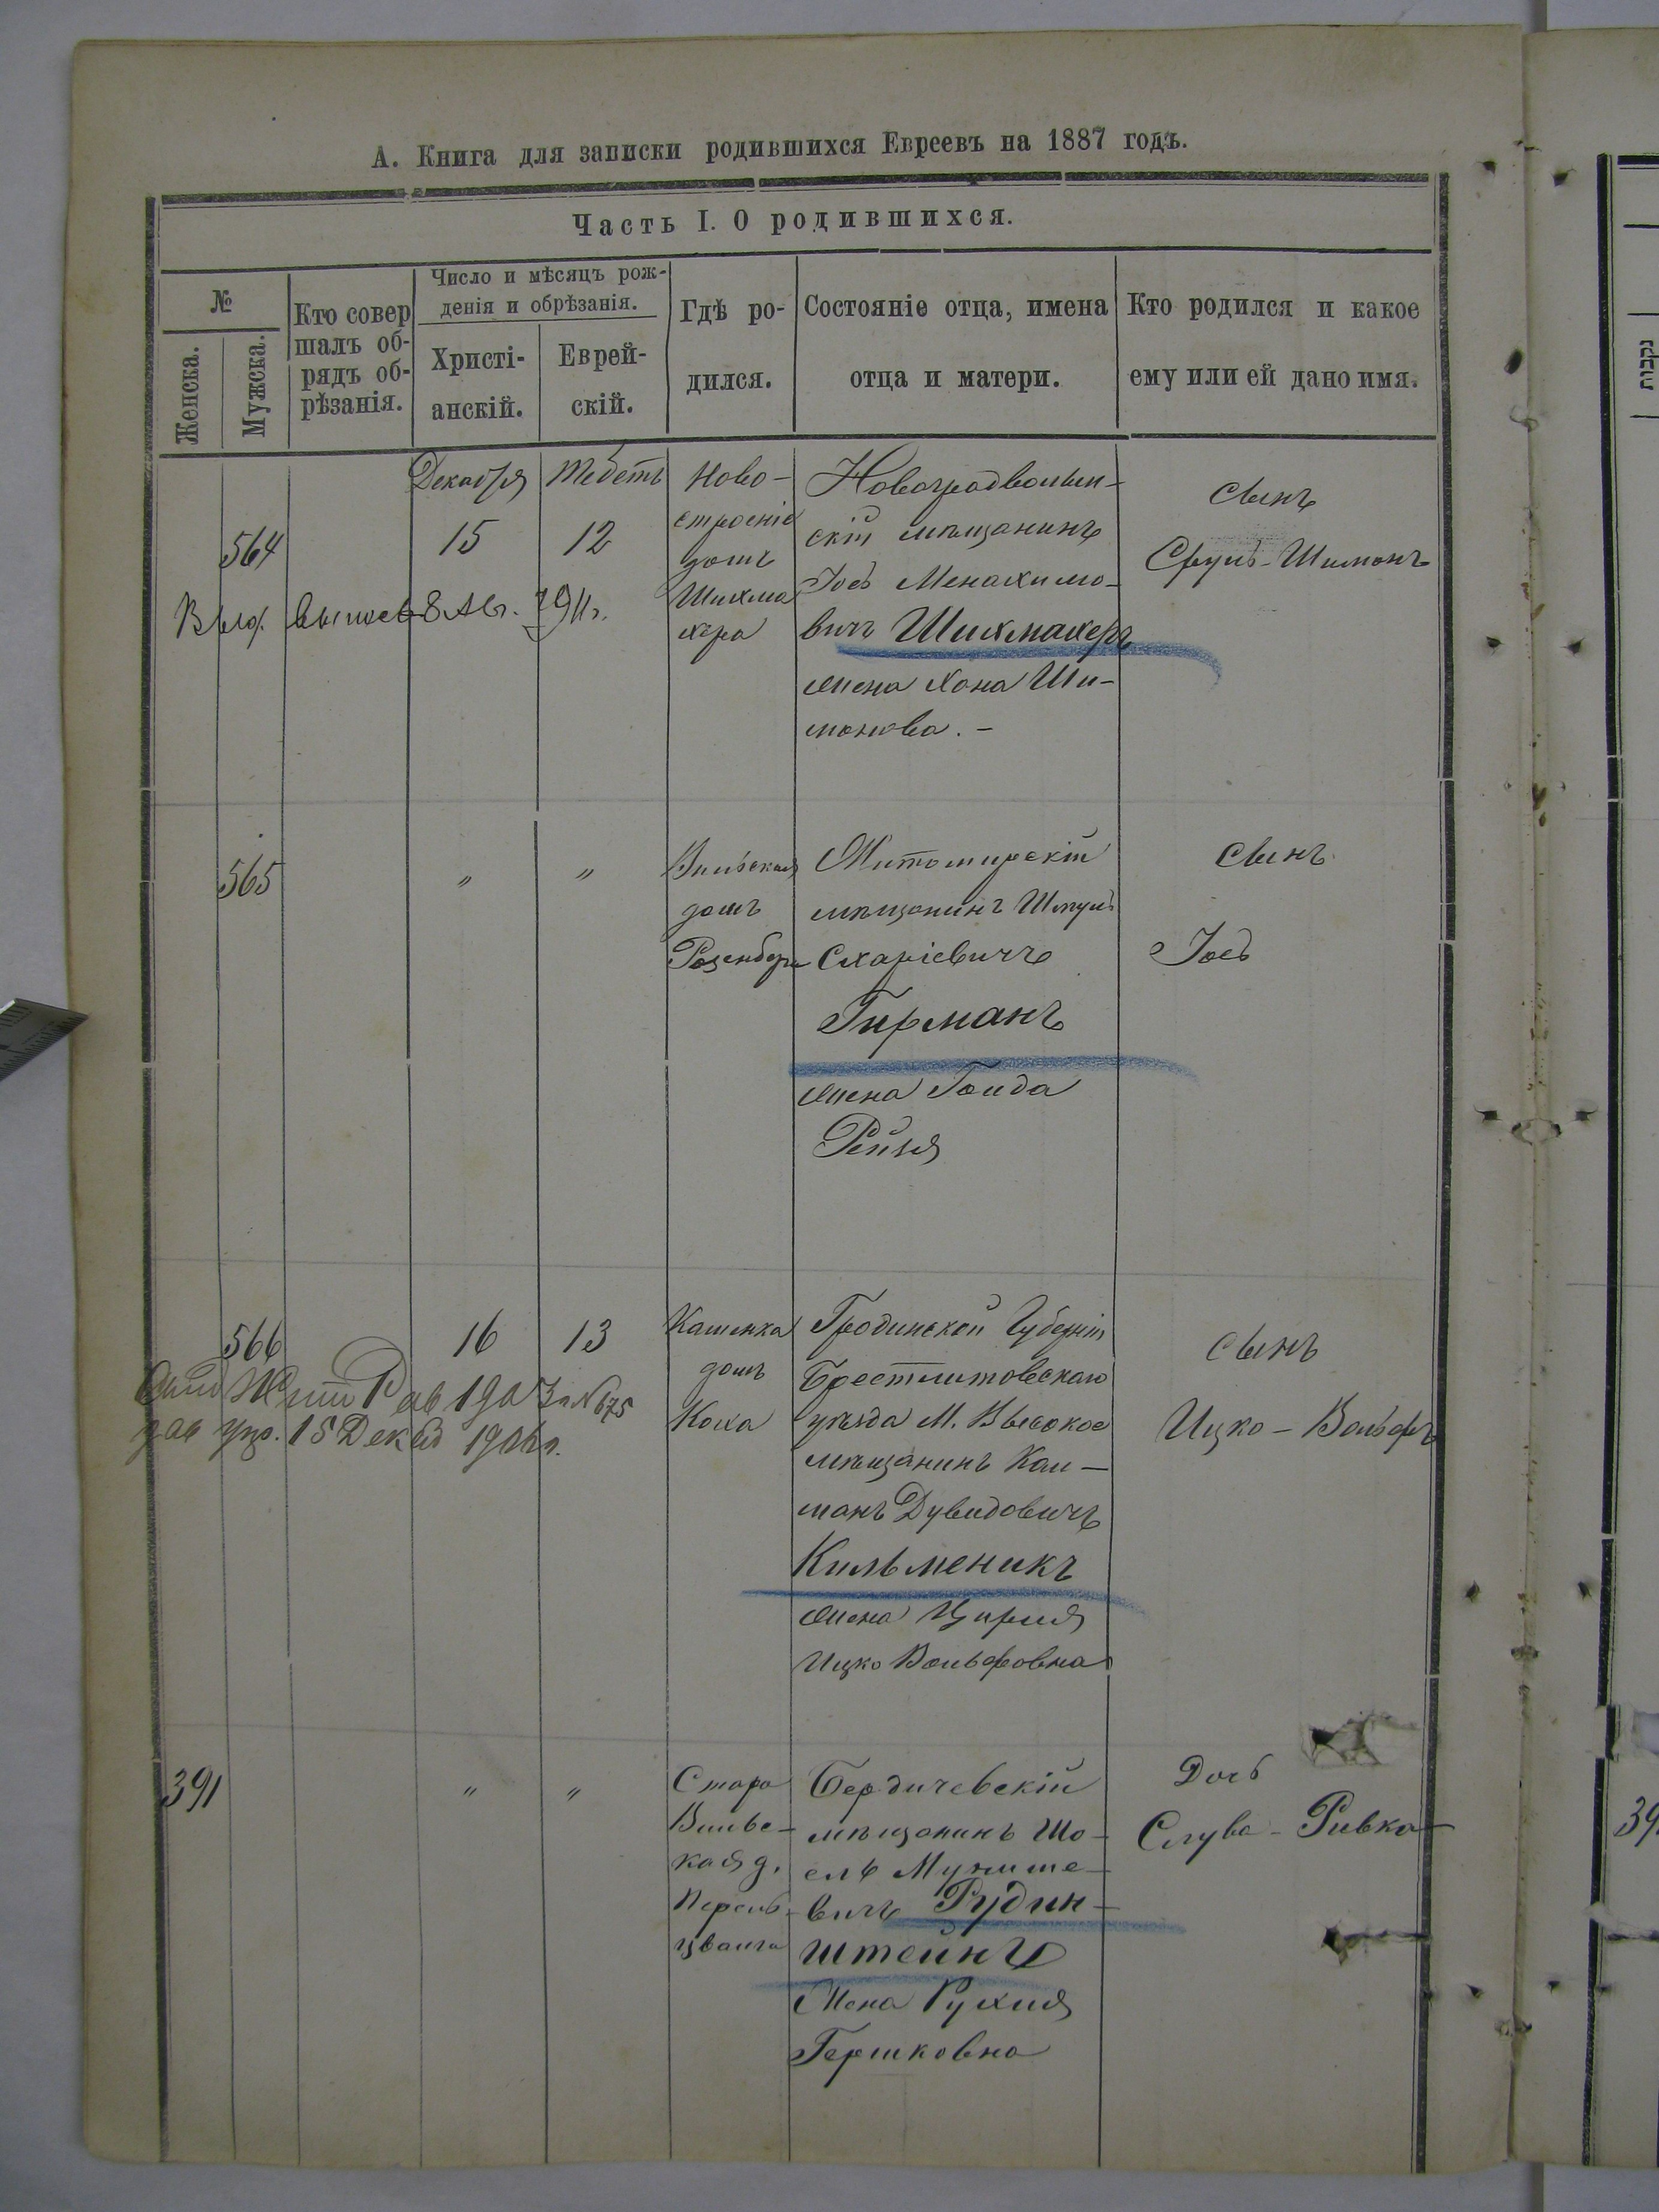 А. Книга для записки родившихся Евреевъ на 1887 годъ.
Часть I. О родившихся.
№
Женска.
Мужска.
Кто совер
шалъ об-
рядъ об-
рѣзанія.
Число и мѣсяцъ рож-
денія и обрѣзанія.
Христі-
анскій.
Еврей-
скій.
Гдѣ ро-
дился.
Состояніе отца, имена
отца и матери.
Кто родился и какое
ему или ей дано имя.
564
Декабря
15
Тебетъ
12
Ново-
строеніе
домъ
Шихма
хера
Новоградволын-
скій мѣщанинъ
Іось Менахимо-
вичъ Шихмахеръ
жена Хона Ши-
монова. -
Сынъ
Сруль-Шимонъ
8 Авг. 1911г.
565
"
"
Вильская
домъ
Розенберга
Житомирскій
мѣщанинъ Шмуль
Схаріевичъ
Гирманъ
жена Голда
Рейзя
Сынъ
Іось
566
16
13
Кашенка
домъ
Коха
Гродненской Губерніи
Брестлитовскаго
уѣзда М. Высокое
мѣщанинъ Кал-
манъ Дувидовичъ
Кильменикъ
жена Цирля
Ицко Вольфовна
Сынъ
Ицко-Вольфъ
№ 675
15 Декаб
391
"
"
Старо
Вильс-
кая д.
Перель-
цвайга
Бердичевскій
мѣщанинъ Шо-
елъ Мунише-
вичъ Рудин-
штейнъ
Жена Рухля
Гершковна
Дочь
Слува-Ривка
נקבות
39